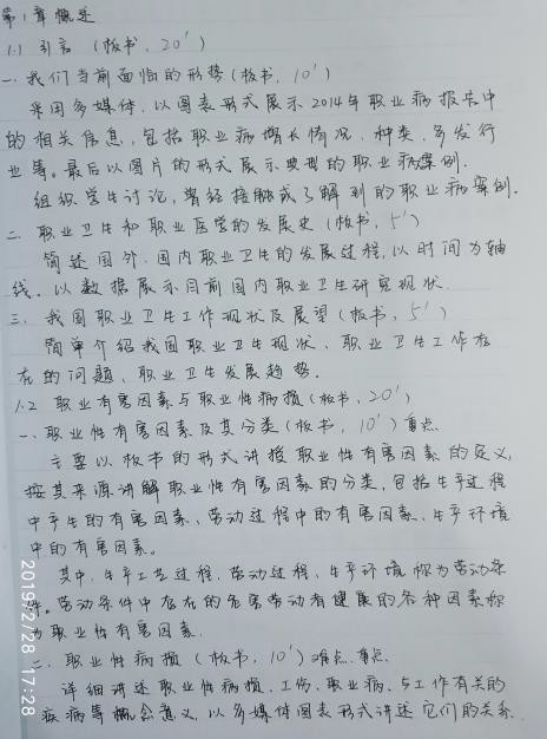 第1章概述
1.1 引言 (板书, 20')
一、我们当前面临的形势(板书, 10')
采用多媒体, 以图表形式展示2014年职业病报告中
的相关信息, 包括职业病增长情况、种类、多发行
业等。最后以图片的形式展示典型的职业病案例.
组织学生讨论, 曾经接触或了解到的职业病案例.
二、职业卫生和职业医学的发展史(板书, 5')
简述国外、国内职业卫生的发展过程, 以时间为轴
线。以数据展示目前国内职业卫生研究现状.
三、我国职业卫生工作现状及展望(板书, 5')
简单介绍我国职业卫生现状、职业卫生工作存
在的问题、职业卫生发展趋势.
1.2 职业有害因素与职业性病损(板书, 20')
一、职业性有害因素及其分类(板书, 10')重点.
主要以板书的形式讲授职业性有害因素的定义,
按其来源讲解职业性有害因素的分类, 包括生产过程
中产生的有害因素、劳动过程中的有害因素、生产环境
中的有害因素。
其中, 生产工艺过程、劳动过程、生产环境称为劳动条
件。劳动条件中存在的危害劳动者健康的各种因素称
为职业性有害因素.
二、职业性病损(板书, 10')难点、重点.
详细讲述职业性病损、工伤、职业病、与工作有关的
疾病等概念意义, 以多媒体图表形式讲述它们的关系.
2019/2/28 17:28